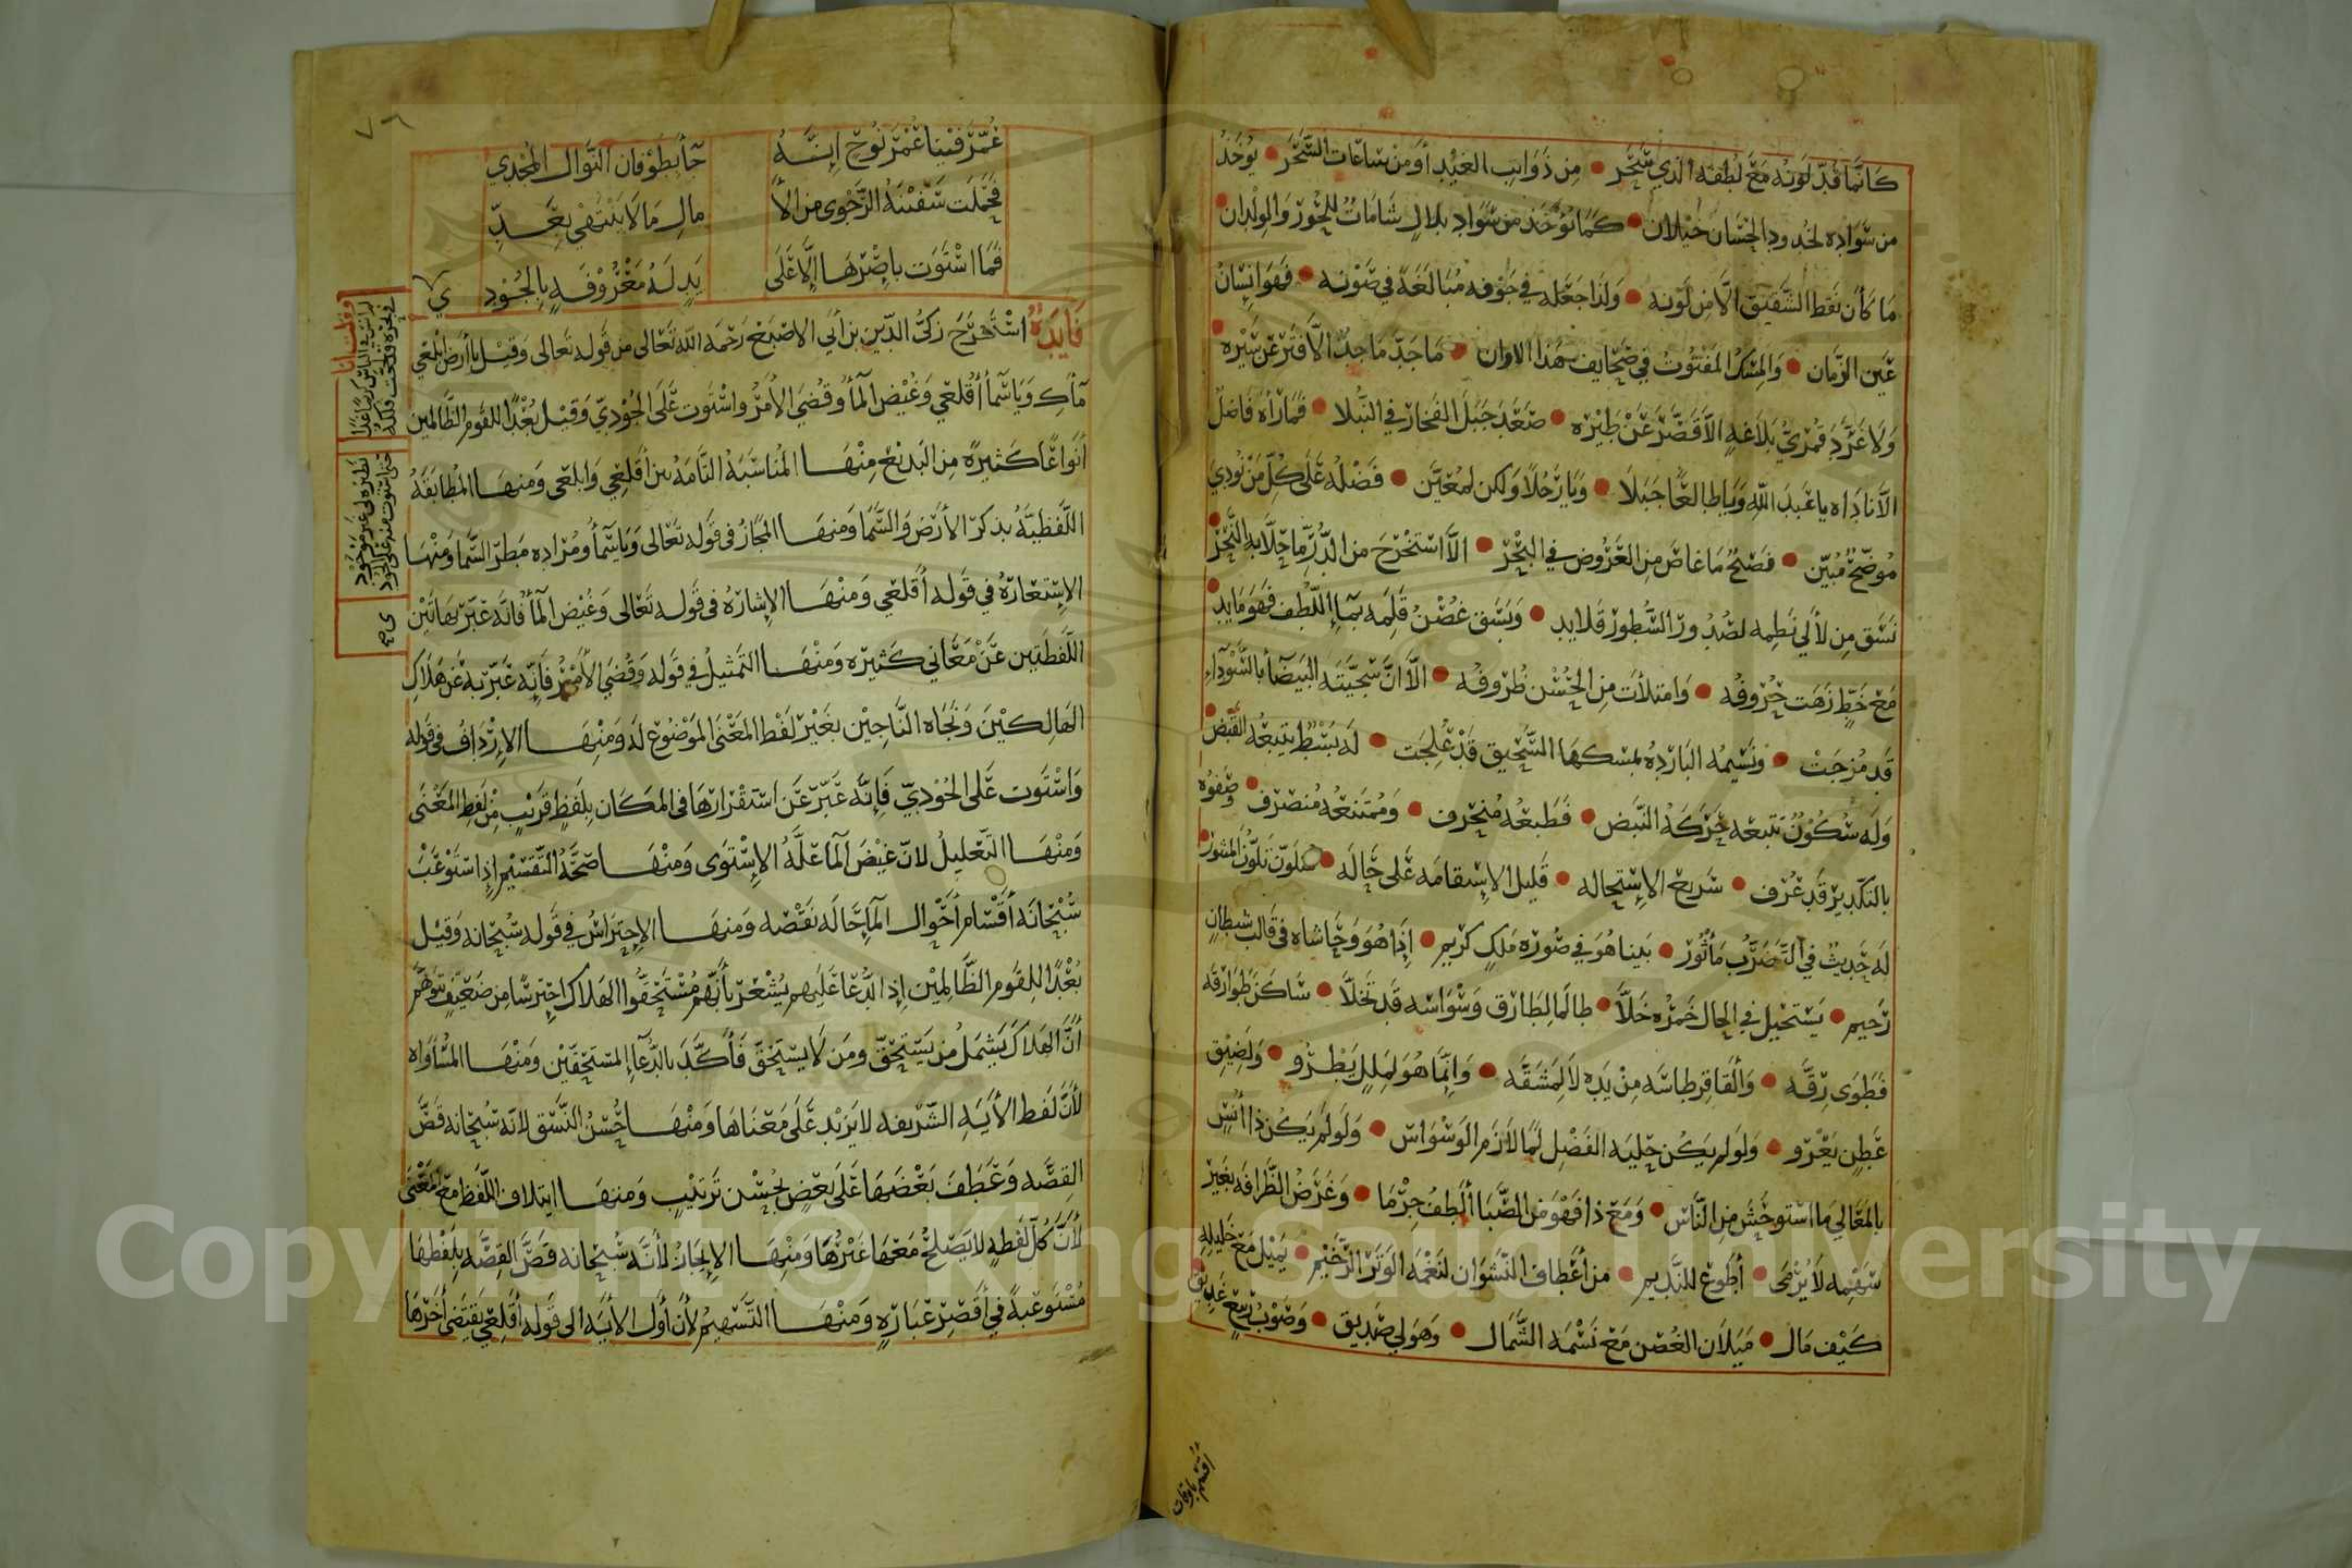 كَانمَّا قُدّ لَونه مَعَ لُطفه الذي سَحَر • مِن ذَوَايب الغِيْد أومن سَاعَات السَّحَر • يوُخَذ
من سَوَادِه لخدود الحِسَان خيْلان • كَما يؤخَذ من سَوادِ بلالٍ شَامَات للحُور وَالولدَان •
مَا كَانَ نقط الشَّقيق الّا مِن لَونه • وَلذا جَعَله في جَوفه مُبَالَغَةً في صَوْنه • فهَوَ انِسَانُ
عَين الزّمان • وَالمِسْك المَفتُوت في صَحَايف هذا الاوان • مَا جَدّ مَاجِدٌ الاَّ فتَر عَن سَيْره •
وَلا غرّدَ قمْريّ بَلاَغةٍ الاّ قَصَّرَ عَنْ طَيْره • صَعَدَ جَبَلَ الفَخار في النّبلا • فمَا رَآهُ فاضلٌ
الاّ نادَاه يا عَبدَ اللهِ وَيَا طالعًا جَبَلا • وَيَا رَجُلاً ولكن لمعَيَّن • فَضْلُه عَلَى كُلّ مَن نُودِيَ
مُوضّحٌ مُبيّن • فصَيْحٌ مَا غاصَ مِن العَرُوض في البَحْر • الاّ استَخْرَجَ من الدُّرّ مَا حَلاَّ به النَّحْر •
نسَّق مِن لآلي نَظمِه لصُدُور السُّطور قلايد • وَبَسَق غصْن قَلمِه بمَاءِ اللّطف فهَوَ مَايد •
مَعَ خَطٍّ زَهَت حُرُوفُه • وَامتلأت مِن الحُسْن ظُرُوفُه • الاّ انَّ سَجيَّته البَيضَآء بالسَّوْدآءِ
قد مُزجَتْ • وَنَسَيمُه البَاردِهُ بمسكهَا السَّحيق قَدْ عُلجَت • لَه بَسْط يتبعُه القَبْض •
وَلَه سُكُوْنٌ تتبعه حَرَكَة النّبَض • فَطبعُه مُنحرف • وَمُمتنعُه مُنصَرف • وَصَفوُه
بالتكّدِير قَد عُرف • سَريع الاسْتِحاله • قَليل الاسِتقامَه عَلى حَاله • يتلَوّن تلوّن المنثور •
لَه حَديث في التَّضَرُّب مَأثُور • بَينا هُوَ في صُورَه مَلكٍ كريم • إذَا هُوَ وَحَاشاه في قالب شيطانٍ
رَجيم • يسَتحيل في الحال خَمرُه خَلاَّ • طالما لِطَارق وَسْوَاسه قَد تَخَلاَّ • سَاكَن طوارقَه
فَطوَى رِقَّه • وَالقَا قِرطاسَه مِنْ يَدِه لا لِمَشقَّه • وَانِمَّا هُوَ لِمَللٍ يَطْرُو • وَلضِيْق
عَطنٍ يَعْرو • وَلولم يكُن حِليَه الفَضْل لمَا لازَم الوَسْوَاسَ • وَلَو لم يَكُن ذا اُنسٍ
بالمَعَالي مَا استوحَشَ مِن النّاسِ • وَمَعَ ذا فَهْوَ مِن الصَّبَا ألطفُ جِرْمَا • وَغَرَضُ الظّرَافَه بغيَر
سَهْمِه لا يُرْمَى • أطوَع للنّديم • من أعْطاف النَّشوَان لنَغمَه الوَتَر الرَّخَيْم • يَميْل مَعَ خَليله
كَيْف مَال • مَيَلاَن الغُصْن مَعَ نَسْمَه الشَّمَال • وَهوَ لي صَديق • وَصَوْبُ رَبيعٍ غَدِيق •
أقسم باوقات
٧٦
عُمِّرَ فيْنا عُمْرَ نُوْحٍ إنّهُ جَآء بطوْفان النَّوَال المُجْدي
فحَّملَت سَفيْنَهُ الرَّجْوى من الآ مالِ مَا لا ينْتهيْ بعَدِّ
فمَا اسْتَوَت بإصْرهَا الاَّ عَلَى يَدٍ لَهُ مَعْرُوْفةٍ بالجُوْدِ
فَايدَةٌ اسْتَخرَج زكيُّ الدّين بن أبي الاصْبَع رَحْمَه اللّه تَعَالى من قوله تَعالى وَقِيْل ياأرض ابْلعي
مآءكِ وَيَا سَمآءُ أقْلعي وَغيْضَ المآءُ وقضيَ الأمْرُ واسْتَوت عَلَى الجُوْديّ وَقيْل بُعْدًا للقوم الظّالمين
أنواعًا كَثيرةً مِن البَديْع مِنْهَا المُنَاسَبَةُ التّامّةُ بين أقلعِي وَابلعي وَمنهَا المُطابَقَةُ
اللَّفظيّةُ بذكر الأرْض وَالسَّما وَمنهَا المجَازُ في قوله تعَالى وَيَا سَمآءُ ومُرَاده مَطر السَّما وَمنْهَا
الاِسْتعَارَهُ في قوله أقلعي وَمنهَا الاِشارَهُ في قوله تعَالى وَغيْض المآءُ فانّه عَبّر بهَاتَيْن
اللَّفظَتين عَنْ مَعَاني كَثيره وَمنْهَا التمثيلُ في قوله وَقُضيَ الأمْرُ فَانِّه عَبّر به عَن هَلاَك
الهَالكيْنَ وَنَجَاه النَّاجيْن بغَيْر لَفظ المَعْنَى المَوْضُوْع لَه وَمنْهَا الاِرْدَافُ في قوله
وَاسْتَوَت عَلى الجُوْديّ فَإنَّه عَبّر عَن اسْتقْرَارهَا في المَكَان بلَفظٍ قَريْبٍ مِنْ لَفظ المَعْنَى
وَمنْهَا التَّعْليلُ لانّ غيْضَ المآء علّةُ الاِسْتوَى وَمنْهَا صحَّةُ التَّقسَيْم إذِ اسْتَوْعَبَ
سُبْحَانَه أقْسَام أحْوَال المآء حَالَه نَقْصه وَمنهَا الاِحتِرَاسُ في قوله سُبْحانه وَقيْل
بُعْدًا للقَوم الظَّالمْين إذ الدُّعَا عَليهم يُشْعر بأنّهم مُسْتَحقّوا الهَلاَك احتِرسًا من ضعَيْفٍ يتوَهَّم
أنّ الهَلاكَ يَشمَلُ مَن يَسْتَحقّ ومَن لا يسْتَحِقّ فأكَّدَ بالدّعآءِ المسْتَحقّيْن وَمنْهَا المُسَاوَاه
لأنَّ لَفظ الأيَهِ الشّرَيفه لا يَزيْد عَلى مَعْنَاهَا وَمنْهَا حُسْنُ النَّسَق لانّه سُبْحَانه قَصَّ
القصَّه وَعَطفَ بَعْضهَا عَلى بَعْضٍ بحُسْن تَرتيْبٍ وَمنهَا ايْتلاف اللّفظ مَعَ المَعْنَى
لأنَّ كُلّ لَفْظهٍ لا يَصْلحُ مَعَها غَيْرُهَا وَمنهَا الاِيجَازُ لأنّه سُبْحَانه قَصَّ القِصَّه بلَفْظهَا
مُسْتَوعَبةً في أقْصَر عبَارَهٍ وَمنْهَا التَّسْهيْمُ لأنَّ أوَّل الأيَه الى قوله أقْلعي يَقتَضي أخرَهَا
وقلت أنا